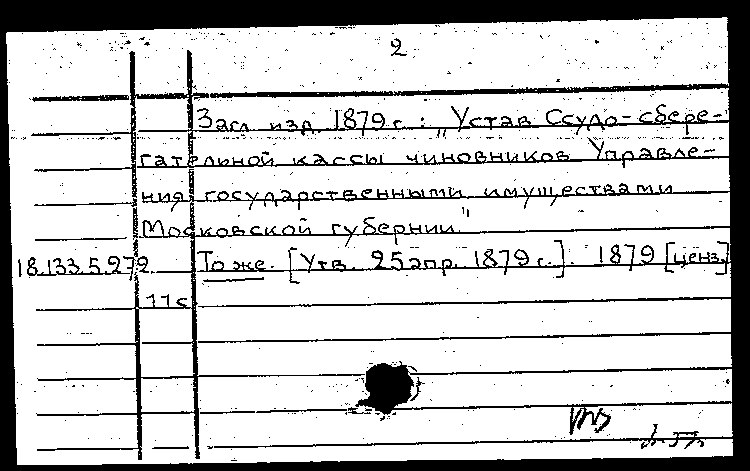 2
Загл изд 1879 г. : „Устав Ссудо-сбере-
гательной кассы чиновников Управле-
ния государственными имуществами
Московской губернии"
18.133.5.279 То же. [Утв. 25 апр. 1879 г.]. 1879 [ценз.]
11 с